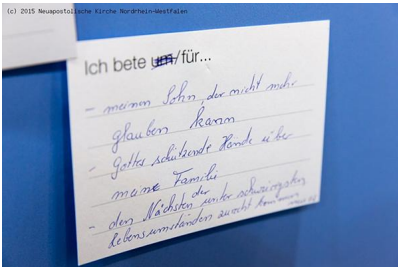 (c) 2015 Neuapostolische Kirche Nordrhein-Westfalen
Ich bete um/für...
- meinen Sohn, der nicht mehr
glauben kann
- Gottes schützende Hände über
meine Familie
- den Nächsten der unter schwierigsten
Lebensumständen zurecht kommen